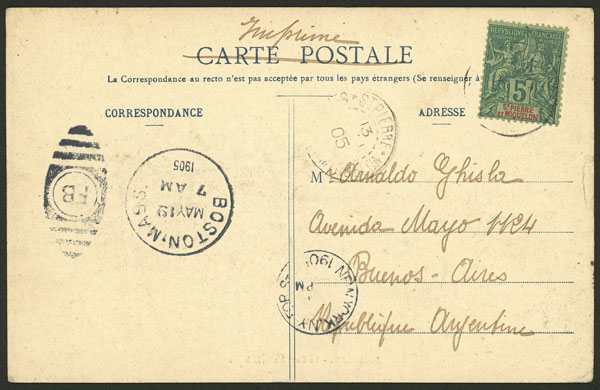 Imprimé
CARTE POSTALE
La Correspondance au recto n'est pas acceptée par tous les pays étrangers (Se renseigner à
CORRESPONDANCE
ADRESSE
RÉPUBLIQUE FRANÇAISE
5
ST PIERRE
ET MIQUELON
ST PIERRE
13
05
FB
BOSTON, MASS.
MAY 19
7 AM
1905
NEW YORK, N.Y.
190
PM
Mr Arnaldo Ghisla
Avenida Mayo 1124
Buenos-Aires
République Argentine